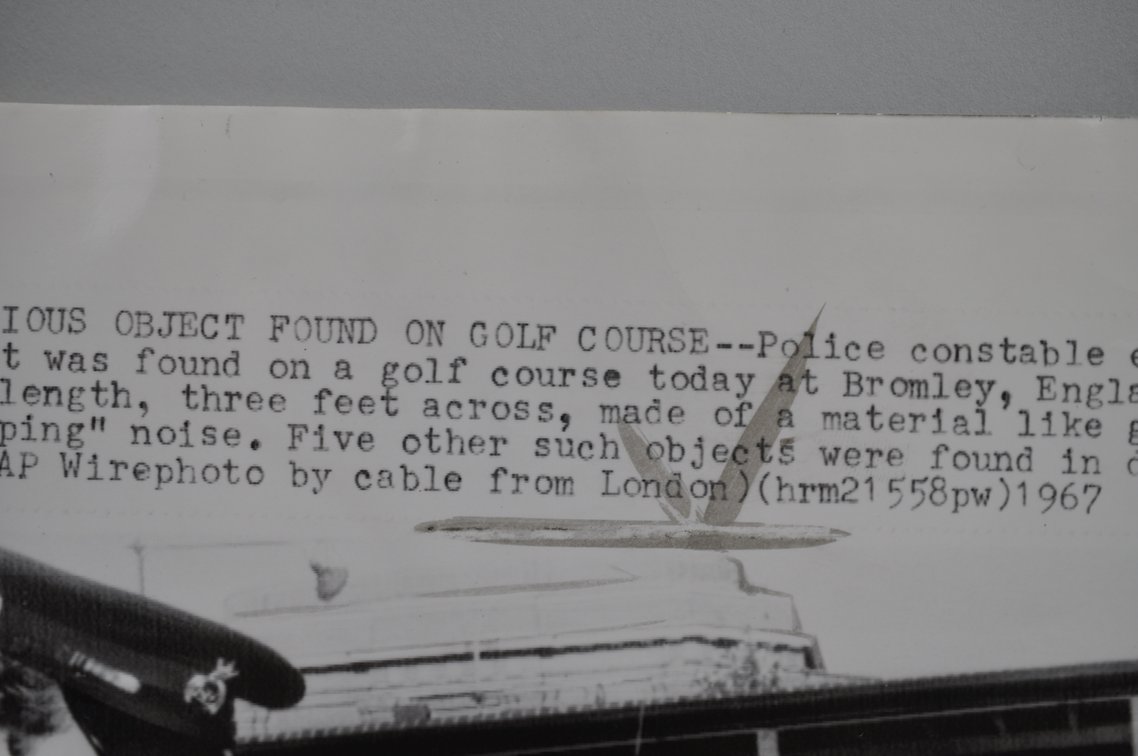 IOUS OBJECT FOUND ON GOLF COURSE--Police constable e
t was found on a golf course today at Bromley, Engla
length, three feet across, made of a material like g
ping" noise. Five other such objects were found in d
AP Wirephoto by cable from London)(hrm21558pw)1967